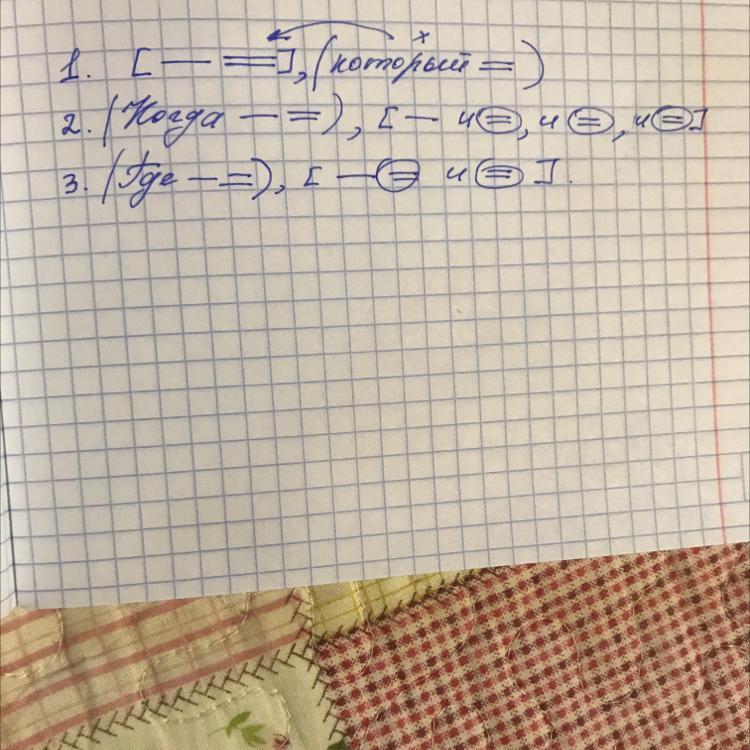 1. [ — = ], ( который = )
2. ( Когда — = ), [ — и =, и =, и = ]
3. ( Где — = ), [ — = и = ].